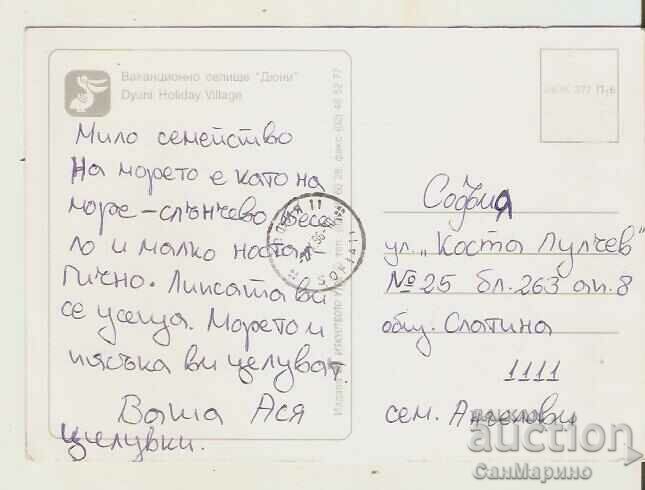 Ваканционно селище "Дюни"
Dyuni Holiday Village
Мило семейство
На морето е като на
море – слънчево, весе-
ло и малко носталгично.
Липсата ви
се усеща. Морето и
пясъка ви целуват.
Ваша Ася
Целувки.
София
ул. „Коста Лулчев"
№ 25 бл. 263 ап. 8
общ. Слатина
1111
сем. Ангелови
SOFIA 11
auction
СанМарино